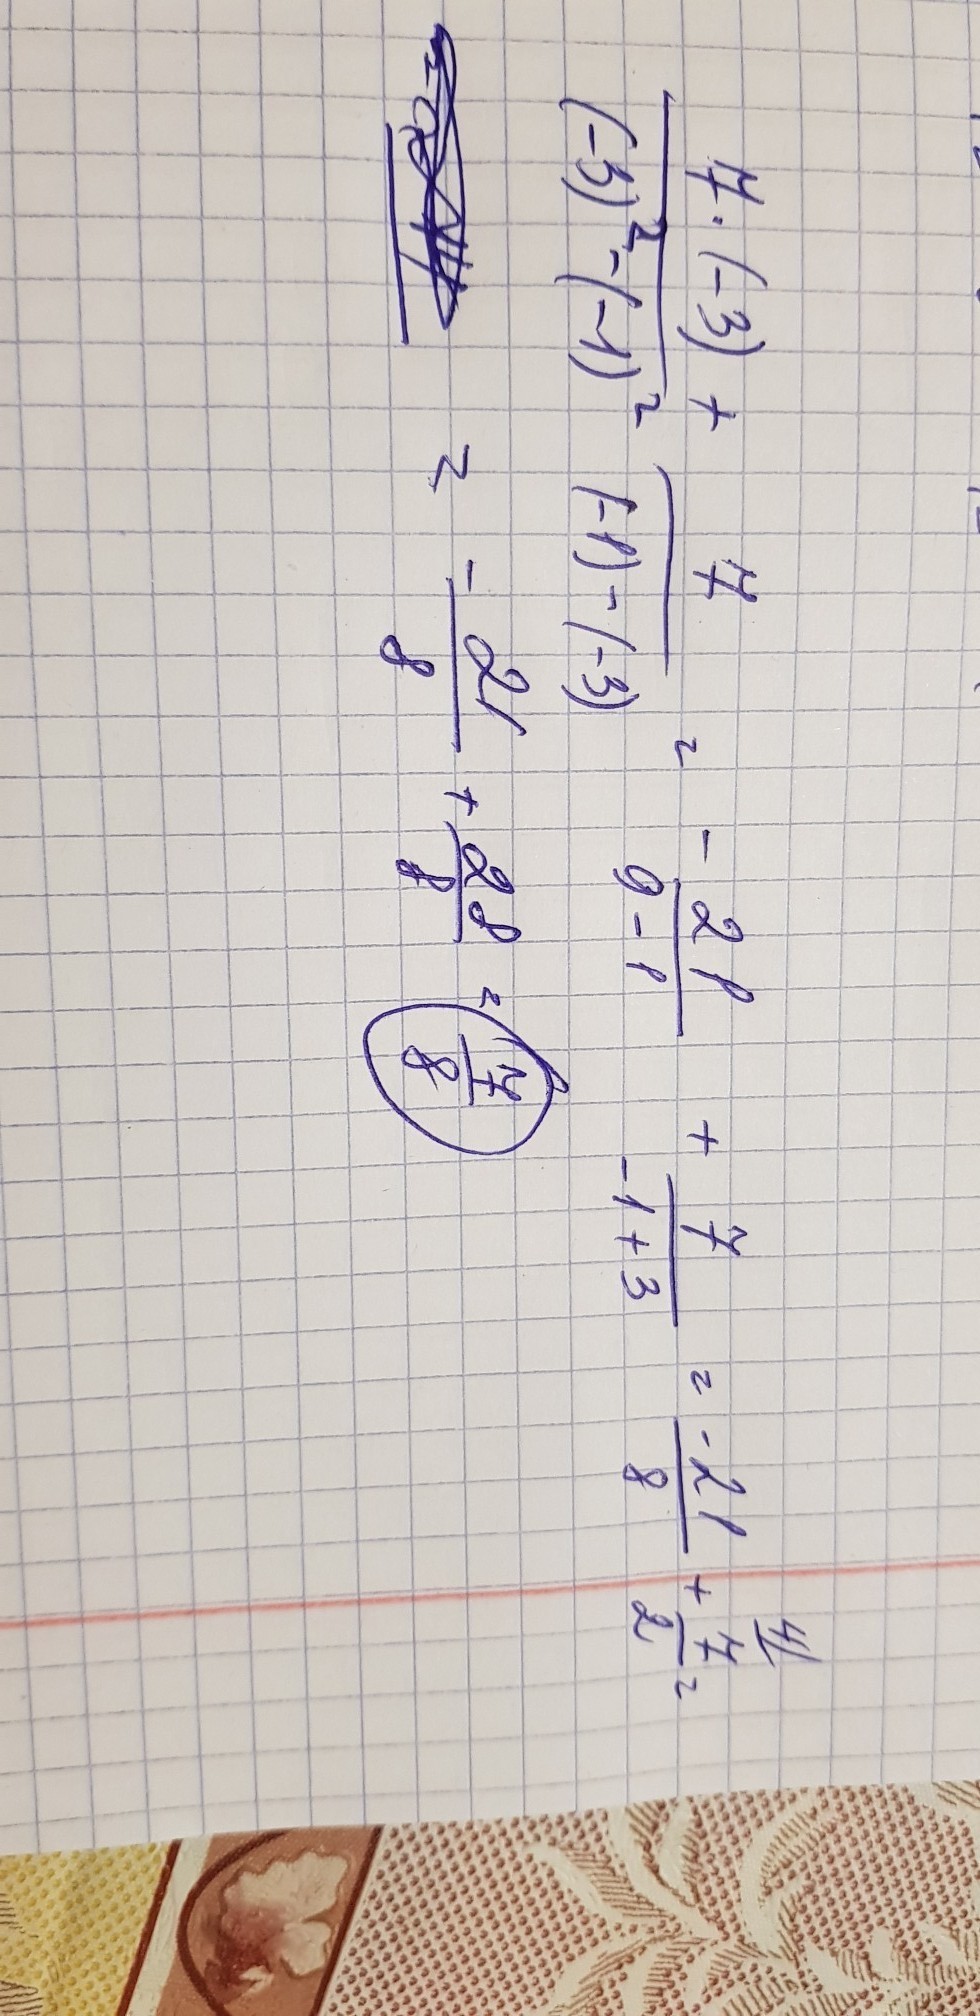 7·(-3)/((-3)²-(-1)²) + 7/((-1)-(-3)) = -21/(9-1) + 7/(-1+3) = -21/8 + 7/2 =
4
= -21/8 + 28/8 = 7/8